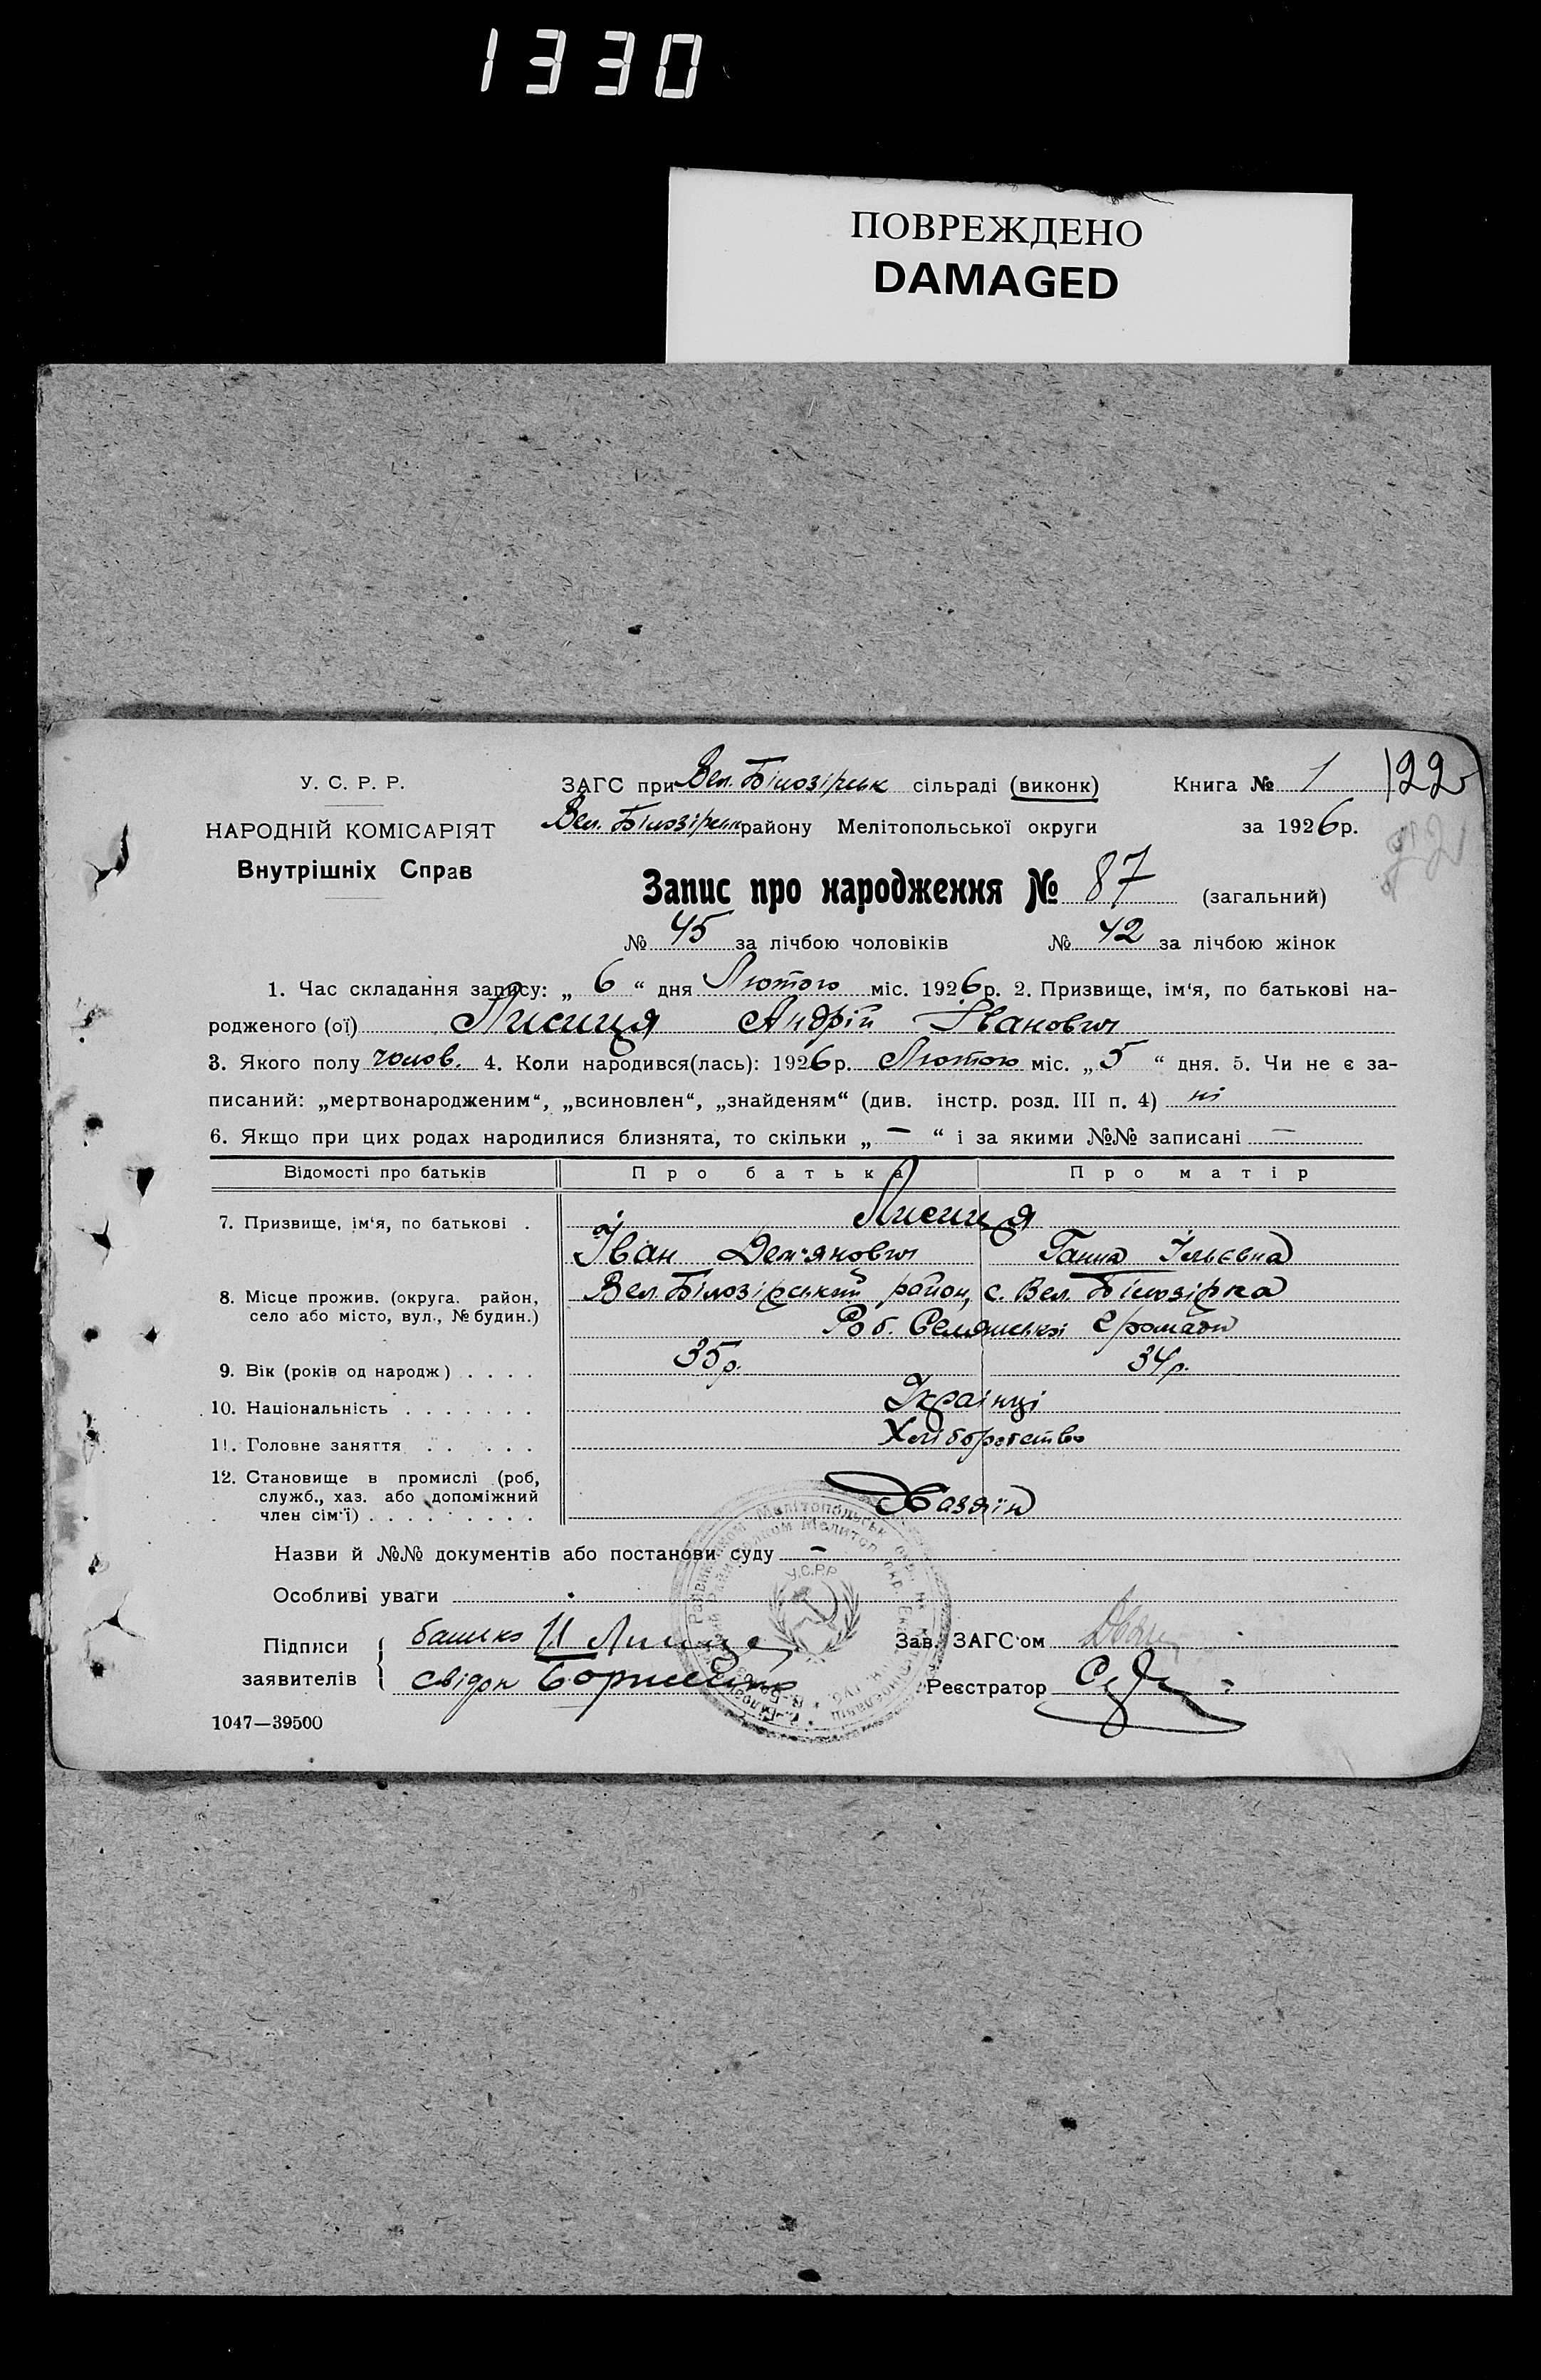 1330
ПОВРЕЖДЕНО
DAMAGED
У. С. Р. Р.
НАРОДНІЙ КОМІСАРІЯТ
Внутрішніх Справ
ЗАГС при Вел. Білозірськ сільраді (виконк) Книга № 1 122
Вел. Білозірськ району Мелітопольської округи за 1926 р.
Запис про народження № 87 (загальний)
№ 45 за лічбою чоловіків № 42 за лічбою жінок
1. Час складання запису: „ 6 “ дня Лютого міс. 1926 р. 2. Призвище, ім‘я, по батькові на-
родженого (ої) Лисиця Андрій Іванович
3. Якого полу чолов. 4. Коли народився(лась): 1926 р. Лютого міс. „ 5 “ дня. 5. Чи не є за-
писаний: „мертвонародженим“, „всиновлен“, „знайденям“ (див. інстр. розд. III п. 4) ні
6. Якщо при цих родах народилися близнята, то скільки „ — “ і за якими №№ записані —
Відомості про батьків Про батька Про матір
7. Призвище, ім‘я, по батькові . Лисиця
Іван Дем‘янович Ганна Ільєвна
8. Місце прожив. (округа. район,
село або місто, вул., № будин.)
Вел. Білозірський район, с. Вел. Білозірка
Роб. Селянської Громади
9. Вік (років од народж) . . . . 35 р. 34 р.
10. Національність . . . . . . . Українці
11. Головне заняття . . . . . . Хліборобство
12. Становище в промислі (роб,
служб., хаз. або допоміжний
член сім‘ї) . . . . . . . . . Хазяїн
Назви й №№ документів або постанови суду —
Особливі уваги
Підписи
заявителів
батько И Лисиця
свідок
Зав. ЗАГС‘ом
Реєстратор
У.С.Р.Р.
1047—39500